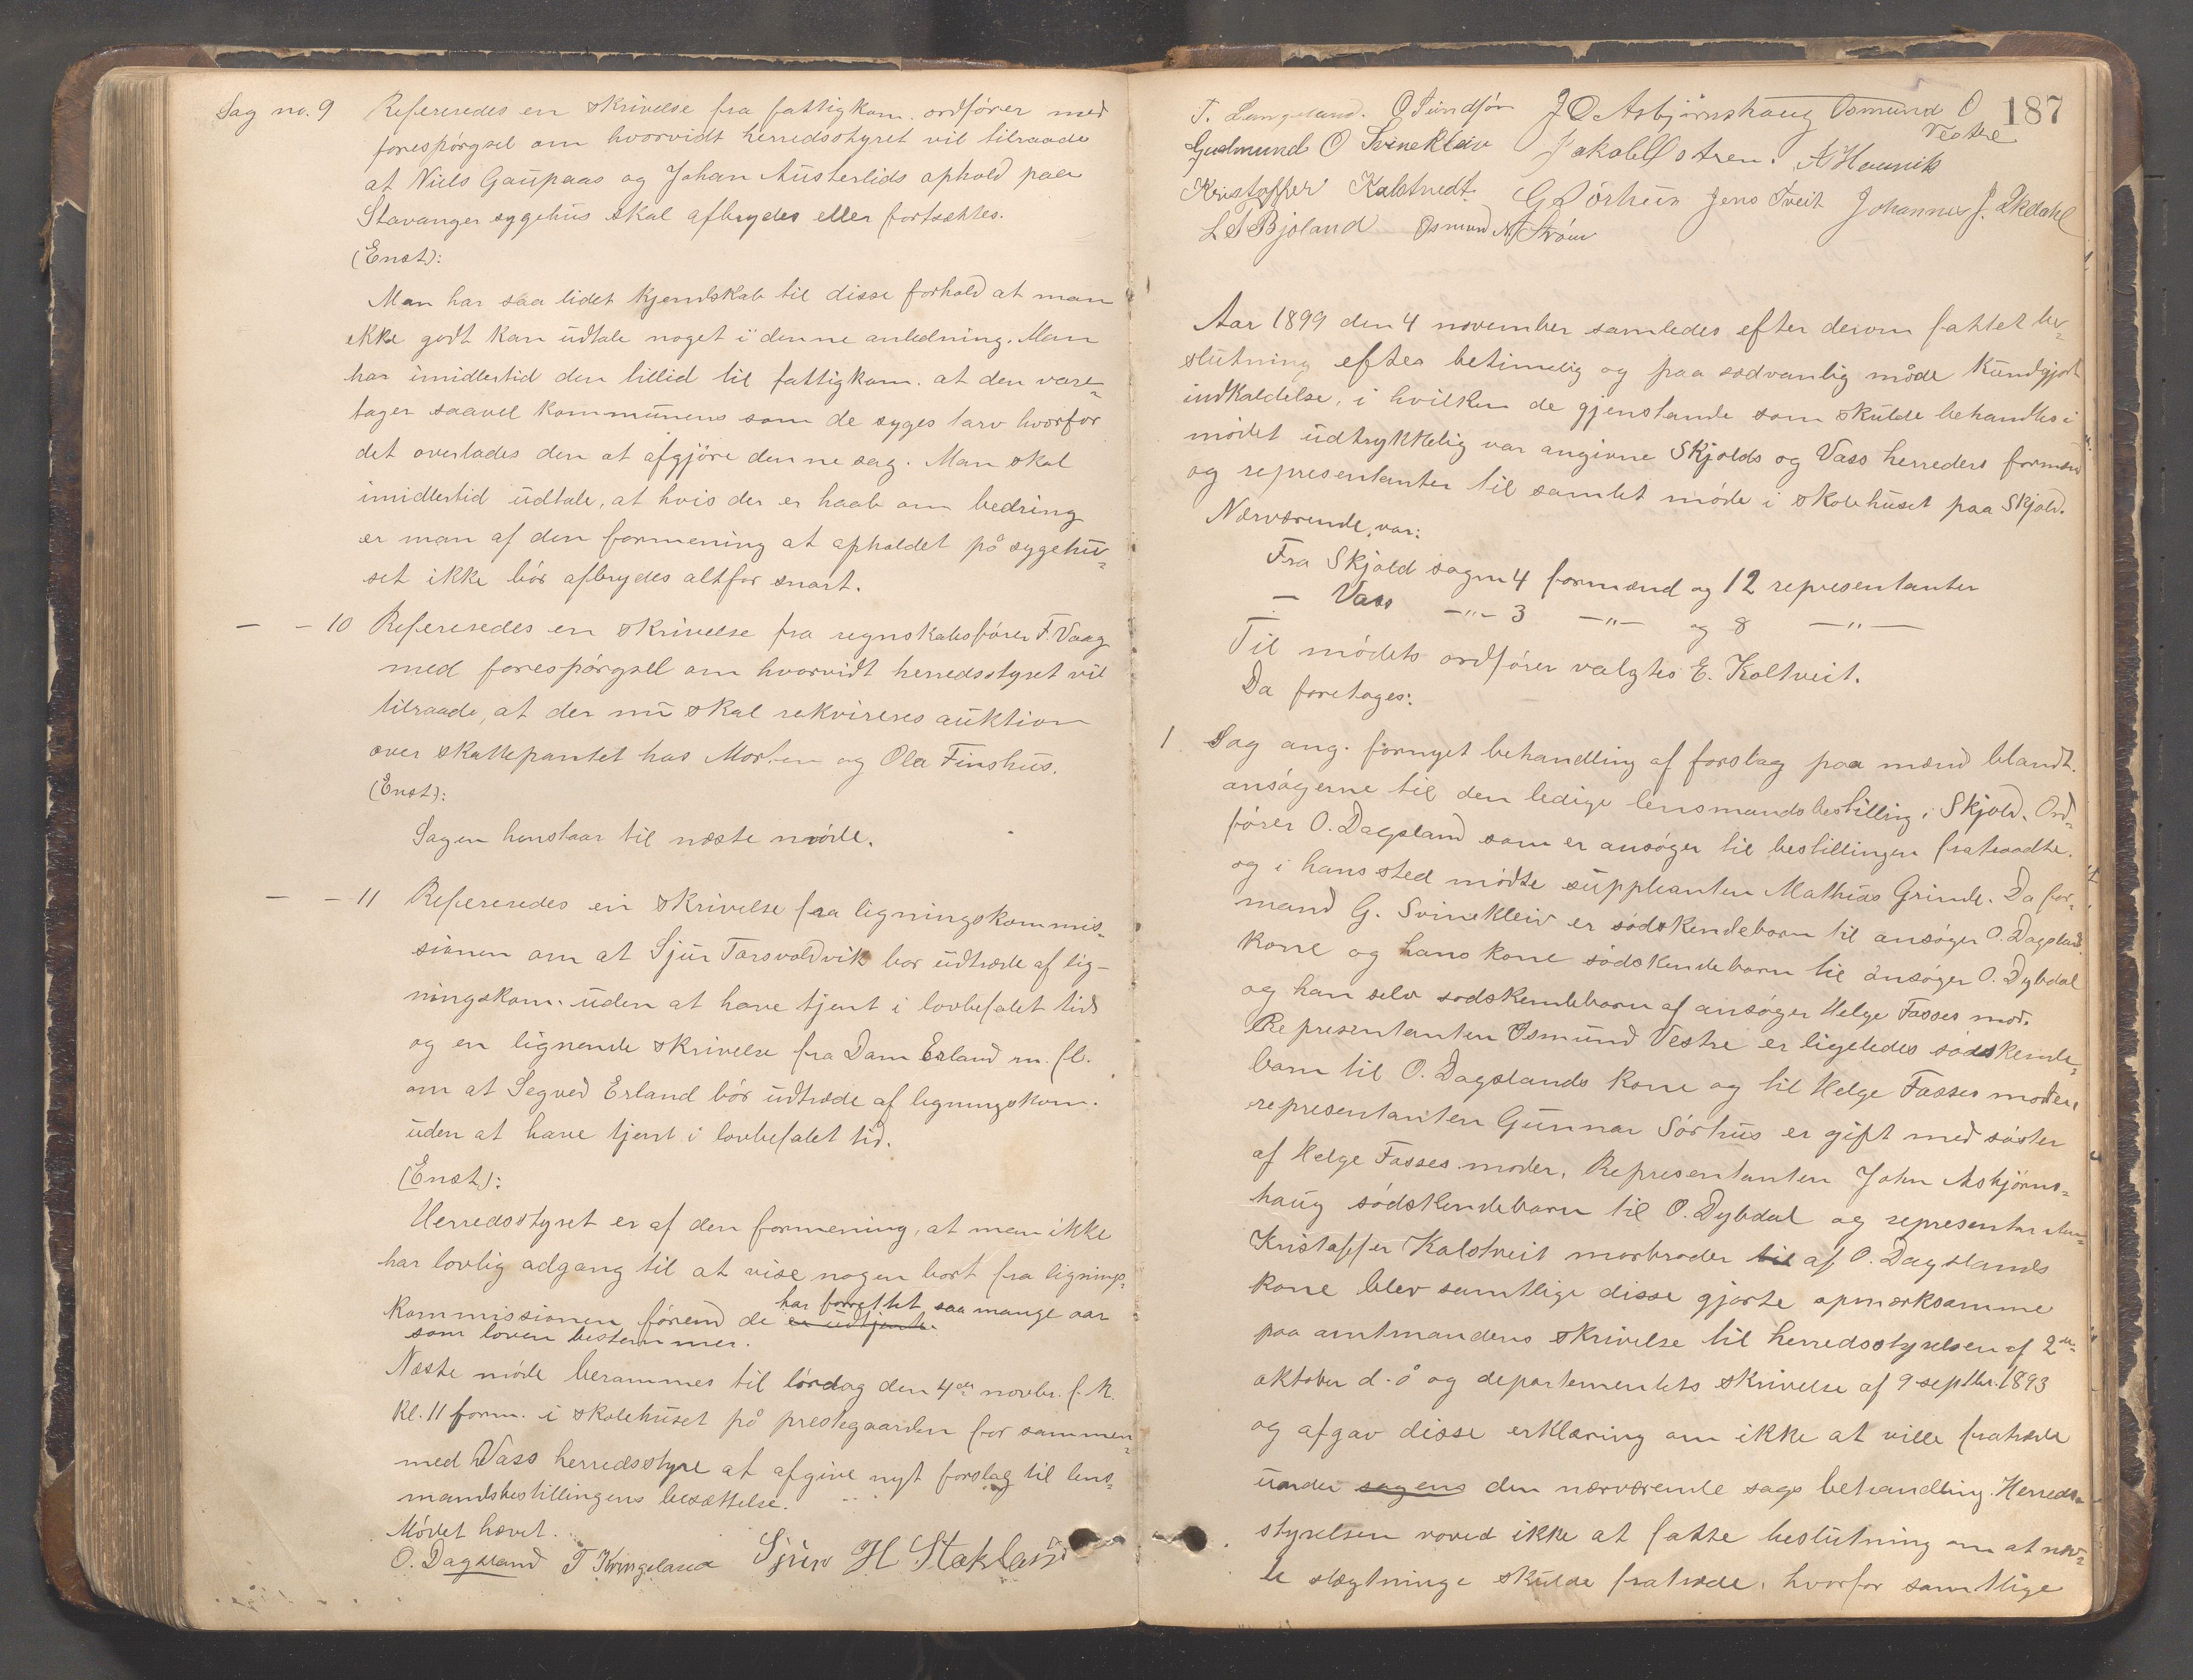 Sag no. 9 Refereredes en skrivelse fra fattigkom. ordfører med
forespørgsel om hvorvidt herredsstyret vil tilraade
at Niels Gaupaas og Johan Austerlids ophold paa
Stavanger sygehus skal afbrydes eller fortsættes.
(Enst):
Man har saa lidet kjendskab til disse forhold at man
ikke godt kan udtale noget i denne anledning. Man
har imidlertid den tillid til fattigkom. at den vare-
tager saavel kommunens som de syges tarv hvorfor
det overlades den at afgjöre denne sag. Man skal
imidlertid udtale, at hvis der er haab om bedring
er man af den formening at opholdet på sygehu-
set ikke bör afbrydes altfor snart.
— — 10 Refereredes en skrivelse fra regnskabsfører F. Vaag
med forespørgsel om hvorvidt herredsstyret vil
tilraade, at der nu skal rekvireres auktion
over skattepantet hos Morten og Ola Finshus.
(Enst):
Sagen henstaar til næste møde.
— — 11 Refereredes en skrivelse fra ligningskommis-
sionen om at Sjur bør udtræde af lig-
ningskom. uden at have tjent i lovbefalet tid
og en lignende skrivelse fra Erland m. fl.
om at Segved Erland bör udtræde af ligningskom.
uden at have tjent i lovbefalet tid.
(Enst):
Herredsstyret er af den formening, at man ikke
har lovlig adgang til at vise nogen bort fra lignings-
kommissionen førend de er udtjente. har forrettet saa mange aar
som loven bestemmer.
Næste møde berammes til lørdag den 4de novbr. f. k.
kl. 11 form. i skolehuset på prestegaarden for sammen
med Vass herredsstyre at afgive nyt forslag til lens-
mandsbestillingens besættelse.
Mödet hævet.
O. Dagsland T Kringeland Sjur H Stakland
187
T. Langeland. O Sundfør J O Asbjørnshaug Osmund O
Vestre
Gudmund O Svinekleiv Jakob Ostren. A
Kristoffer Kalstvedt. G Sörhus Jens Tveit Johannes J. Økdahl
L T Bjoland Osmund N Ström
Aar 1899 den 4 november samledes efter derom fattet be-
slutning efter betimelig og paa sædvanlig måde kundgjort
indkaldelse, i hvilken de gjenstande som skulde behandles i
mödet udtrykkelig var angivne Skjolds og Vass herreders formænd
og representanter til samlet møde i skolehuset paa Skjold.
Nærværende var:
Fra Skjold sogn 4 formænd og 12 representanter
— Vass —"— 3 —"— og 8 —"—
Til mödets ordfører valgtes E. Koltveit.
Da foretoges:
1 Sag ang. fornyet behandling af forslag paa mænd blandt
ansøgerne til den ledige lensmandsbestilling i Skjold. Ord-
fører O. Dagsland som er ansøger til bestillingen fratraadte.
og i hans sted mödte suppleanten Mathias Grinde. Da for-
mand G. Svinekleiv er södskendebarn til ansøger O. Dagslands
kone og hans kone södskendebarn til ansøger O. Dybdal
og han selv sødskendebarn af ansøger Helge Fasses mod.
Representanten Osmund Vestre er ligeledes sødskende-
barn til O. Dagslands kone og til Helge Fasses moder,
representanten Gunnar Sörhus er gift med søster
af Helge Fasses moder, Representanten John Asbjörns-
haug södskendebarn til O. Dybdal og representanten
Kristoffer Kalstveit morbroder til af O. Dagslands
kone blev samtlige disse gjorte opmærksomme
paa amtmandens skrivelse til herredsstyrelsen af 2den
oktober d. å og departementets skrivelse af 9 septbr. 1893
og afgav disse erklæring om ikke at ville fratræde
under sagens den nærværende sags behandling. Herreds-
styrelsen voved ikke at fatte beslutning om at næv-
te slægtninge skulde fratræde, hvorfor samtlige